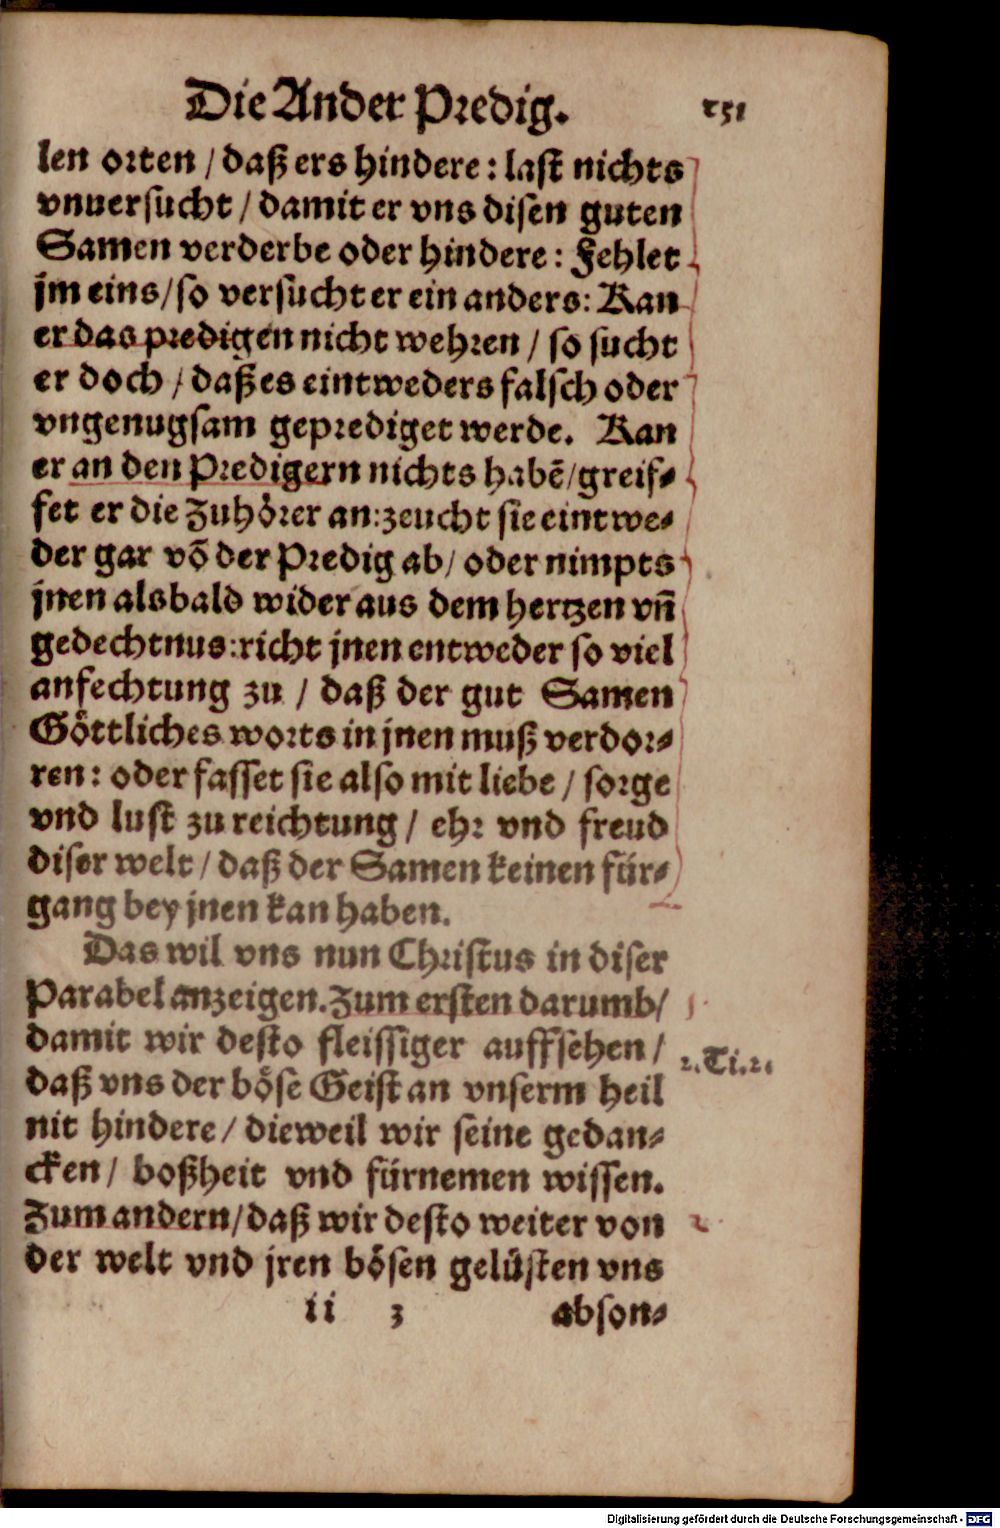 Die Ander Predig. 251
len orten / daß ers hindere: last nichts
vnuersucht / damit er vns disen guten
Samen verderbe oder hindere: Fehlet
jm eins / so versucht er ein anders: Kan
er das predigen nicht wehren / so sucht
er doch / daß es eintweders falsch oder
vngenugsam geprediget werde. Kan
er an den Predigern nichts habẽ / greif⸗
fet er die Zuhörer an: zeucht sie eintwe⸗
der gar võ der Predig ab / oder nimpts
jnen alsbald wider aus dem hertzen vñ
gedechtnus: richt jnen entweder so viel
anfechtung zu / daß der gut Samen
Göttliches worts in jnen muß verdor⸗
ren: oder fasset sie also mit liebe / sorge
vnd lust zu reichtung / ehr vnd freud
diser welt / daß der Samen keinen für⸗
gang bey jnen kan haben.
Das wil vns nun Christus in diser
Parabel anzeigen. Zum ersten darumb /
damit wir desto fleissiger auffsehen /
2. Ti. 2.
daß vns der böse Geist an vnserm heil
nit hindere / dieweil wir seine gedan⸗
cken / boßheit vnd fürnemen wissen.
Zum andern / daß wir desto weiter von
der welt vnd jren bösen gelüsten vns
ii 3 abson⸗
Digitalisierung gefördert durch die Deutsche Forschungsgemeinschaft - DFG